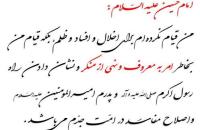 امام حسین علیه السلام:
من قیام نکرده‌ام برای اخلال و افساد و ظلم، بلکه قیام من
بخاطر امر به معروف و نهی از منکر و نشان دادن راه
رسول اکرم صلی الله علیه و آله و پدرم امیرالمؤمنین علیه‌السلام
و اصلاح مفاسد در امت جدّیم می‌باشد.